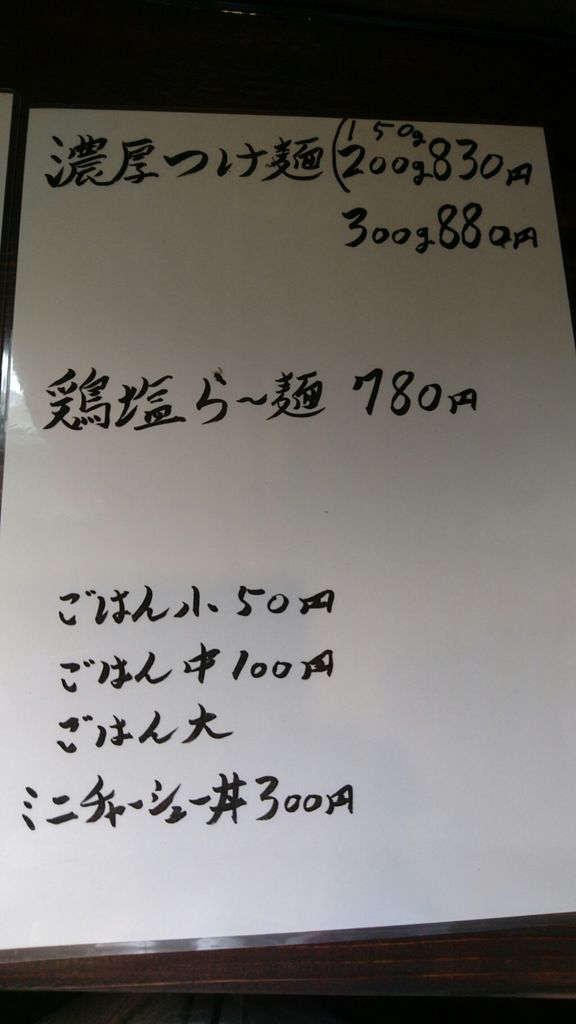 濃厚つけ麺(150g
200g830円
300g880円
鶏塩ら〜麺 780円
ごはん小 50円
ごはん中 100円
ごはん大
ミニチャーシュー丼300円